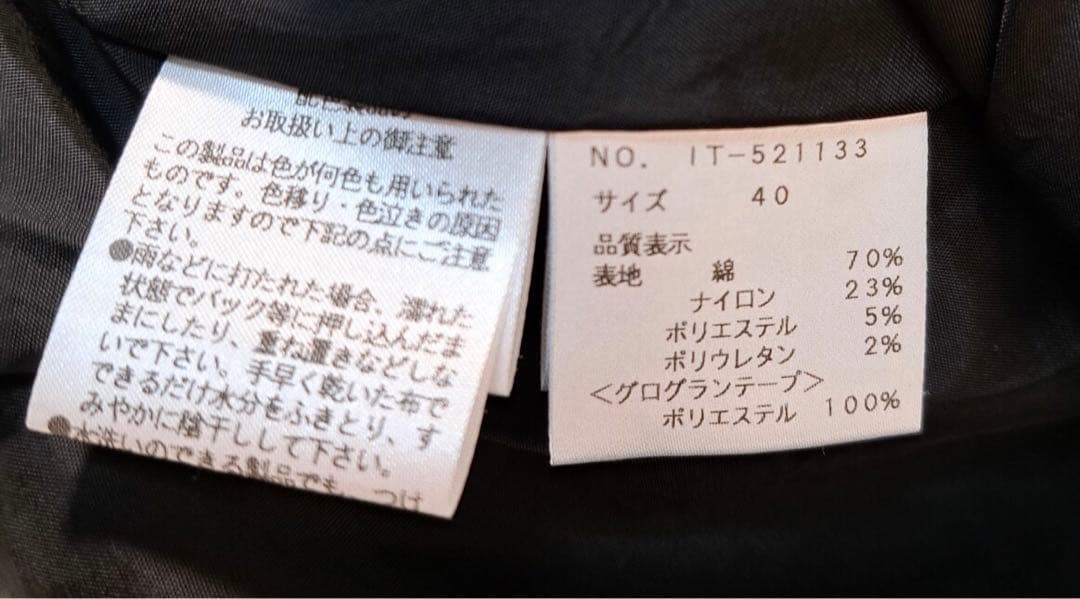 お取扱い上の御注意
この製品は色が何色も用いられた
ものです。色移り・色泣きの原因
となりますので下記の点にご注意
下さい。
●雨などに打たれた場合、濡れた
状態でバック等に押し込んだま
まにしたり、重ね置きなどしな
いで下さい。手早く乾いた布で
できるだけ水分をふきとり、す
みやかに陰干しして下さい。
●水洗いのできる製品でも、つけ
NO. IT-521133
サイズ 40
品質表示
表地 綿 70%
ナイロン 23%
ポリエステル 5%
ポリウレタン 2%
<グログランテープ>
ポリエステル 100%